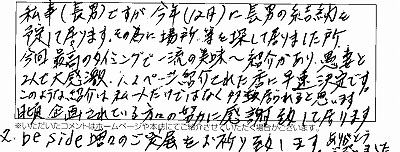 私事(長男)ですが今年(12月)に長男の結納を
予定して居ります。その為に場所等を探して居りました所
今回最高のタイミングで一流の美味〜紹介があり、愚妻と
2人で大感激、1,2ページ紹介された店に早速決定です。
このような紹介は私ムートだけではなく多数居られると思います。
企画されている方々の努力に感謝致して居ります
※いただいたコメントはホームページや本誌にてご紹介させていただく場合がございます。
又、be side 増々のご発展をお祈り致します。ありがとう
ございました